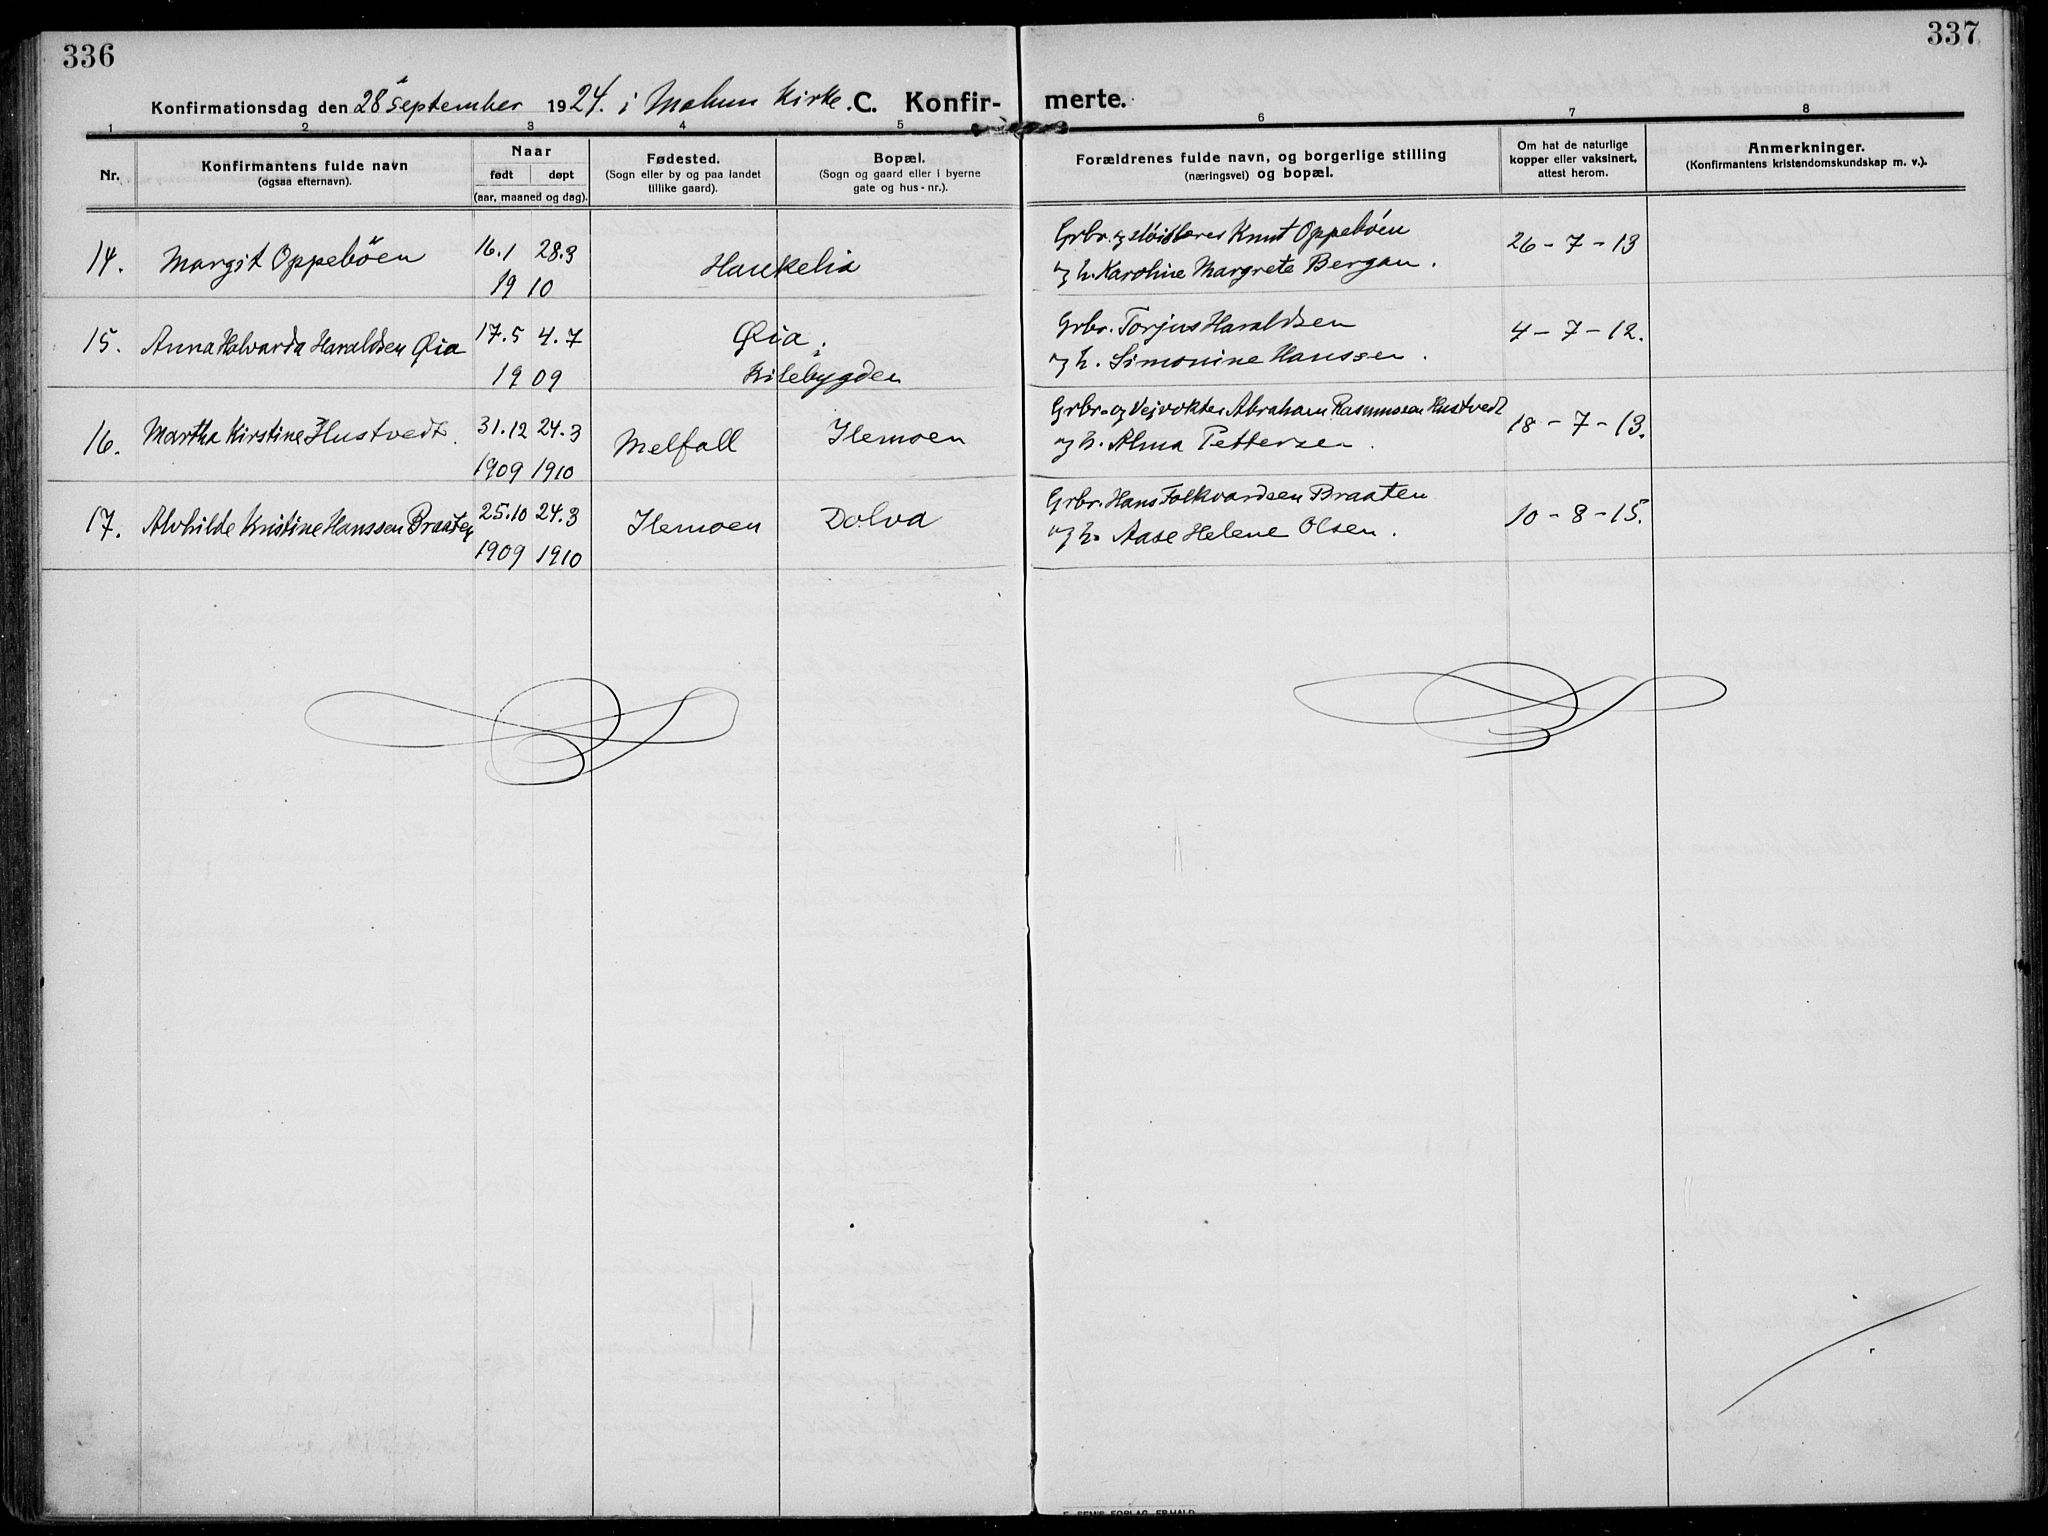 336
337
Konfirmationsdag den 28 september 1924. i Melum Kirke. C. Konfirmerte.
1 2 3 4 5 6 7 8
Nr.
Konfirmantens fulde navn
(ogsaa efternavn).
Naar
født døpt
(aar, maaned og dag).
Fødested.
(Sogn eller by og paa landet
tillike gaard).
Bopæl.
(Sogn og gaard eller i byerne
gate og hus-nr.).
Forældrenes fulde navn, og borgerlige stilling
(næringsvei) og bopæl.
Om hat de naturlige
kopper eller vaksinert,
attest herom.
Anmerkninger.
(Konfirmantens kristendomskundskap m. v.).
14. Margit Oppebøen 16.1 28.3 Haukelia Grbr. og Knut Oppebøen 26-7-13
1910 og h. Karoline Margrete Bergan.
15. Anna Halvarda Haraldsen Øia 17.5 4.7 Øia i Grbr. Torjus Haraldsen 4-7-12.
1909 Kilebygden og h. Simonine Hanssen.
16. Martha Kirstine Hustvedt. 31.12 24.3 Melfall Ilemoen Grbr. og Veivokter Abraham Rasmussen Hustvedt 18-7-13.
1909 1910 og h. Alma Pettersen.
17. Alvhilde Kristine Hanssen Braaten 25.10 24.3 Ilemoen Dolva Grbr. Hans Folkvardsen Braaten 10-8-15.
1909 1910 og h. Aase Helene Olsen.